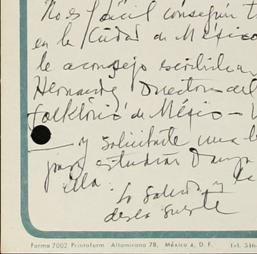 No es fácil conseguir t
en la Ciudad de México
le aconsejo escribir a
Hernandez Directora del
Folklórico de México
y solicitarle una b
para estudiar Danza
ella. La
Lo saluda y
desea suerte
Forma 7002 Printaform Altamirano 78, México 4, D. F. Tel. 546